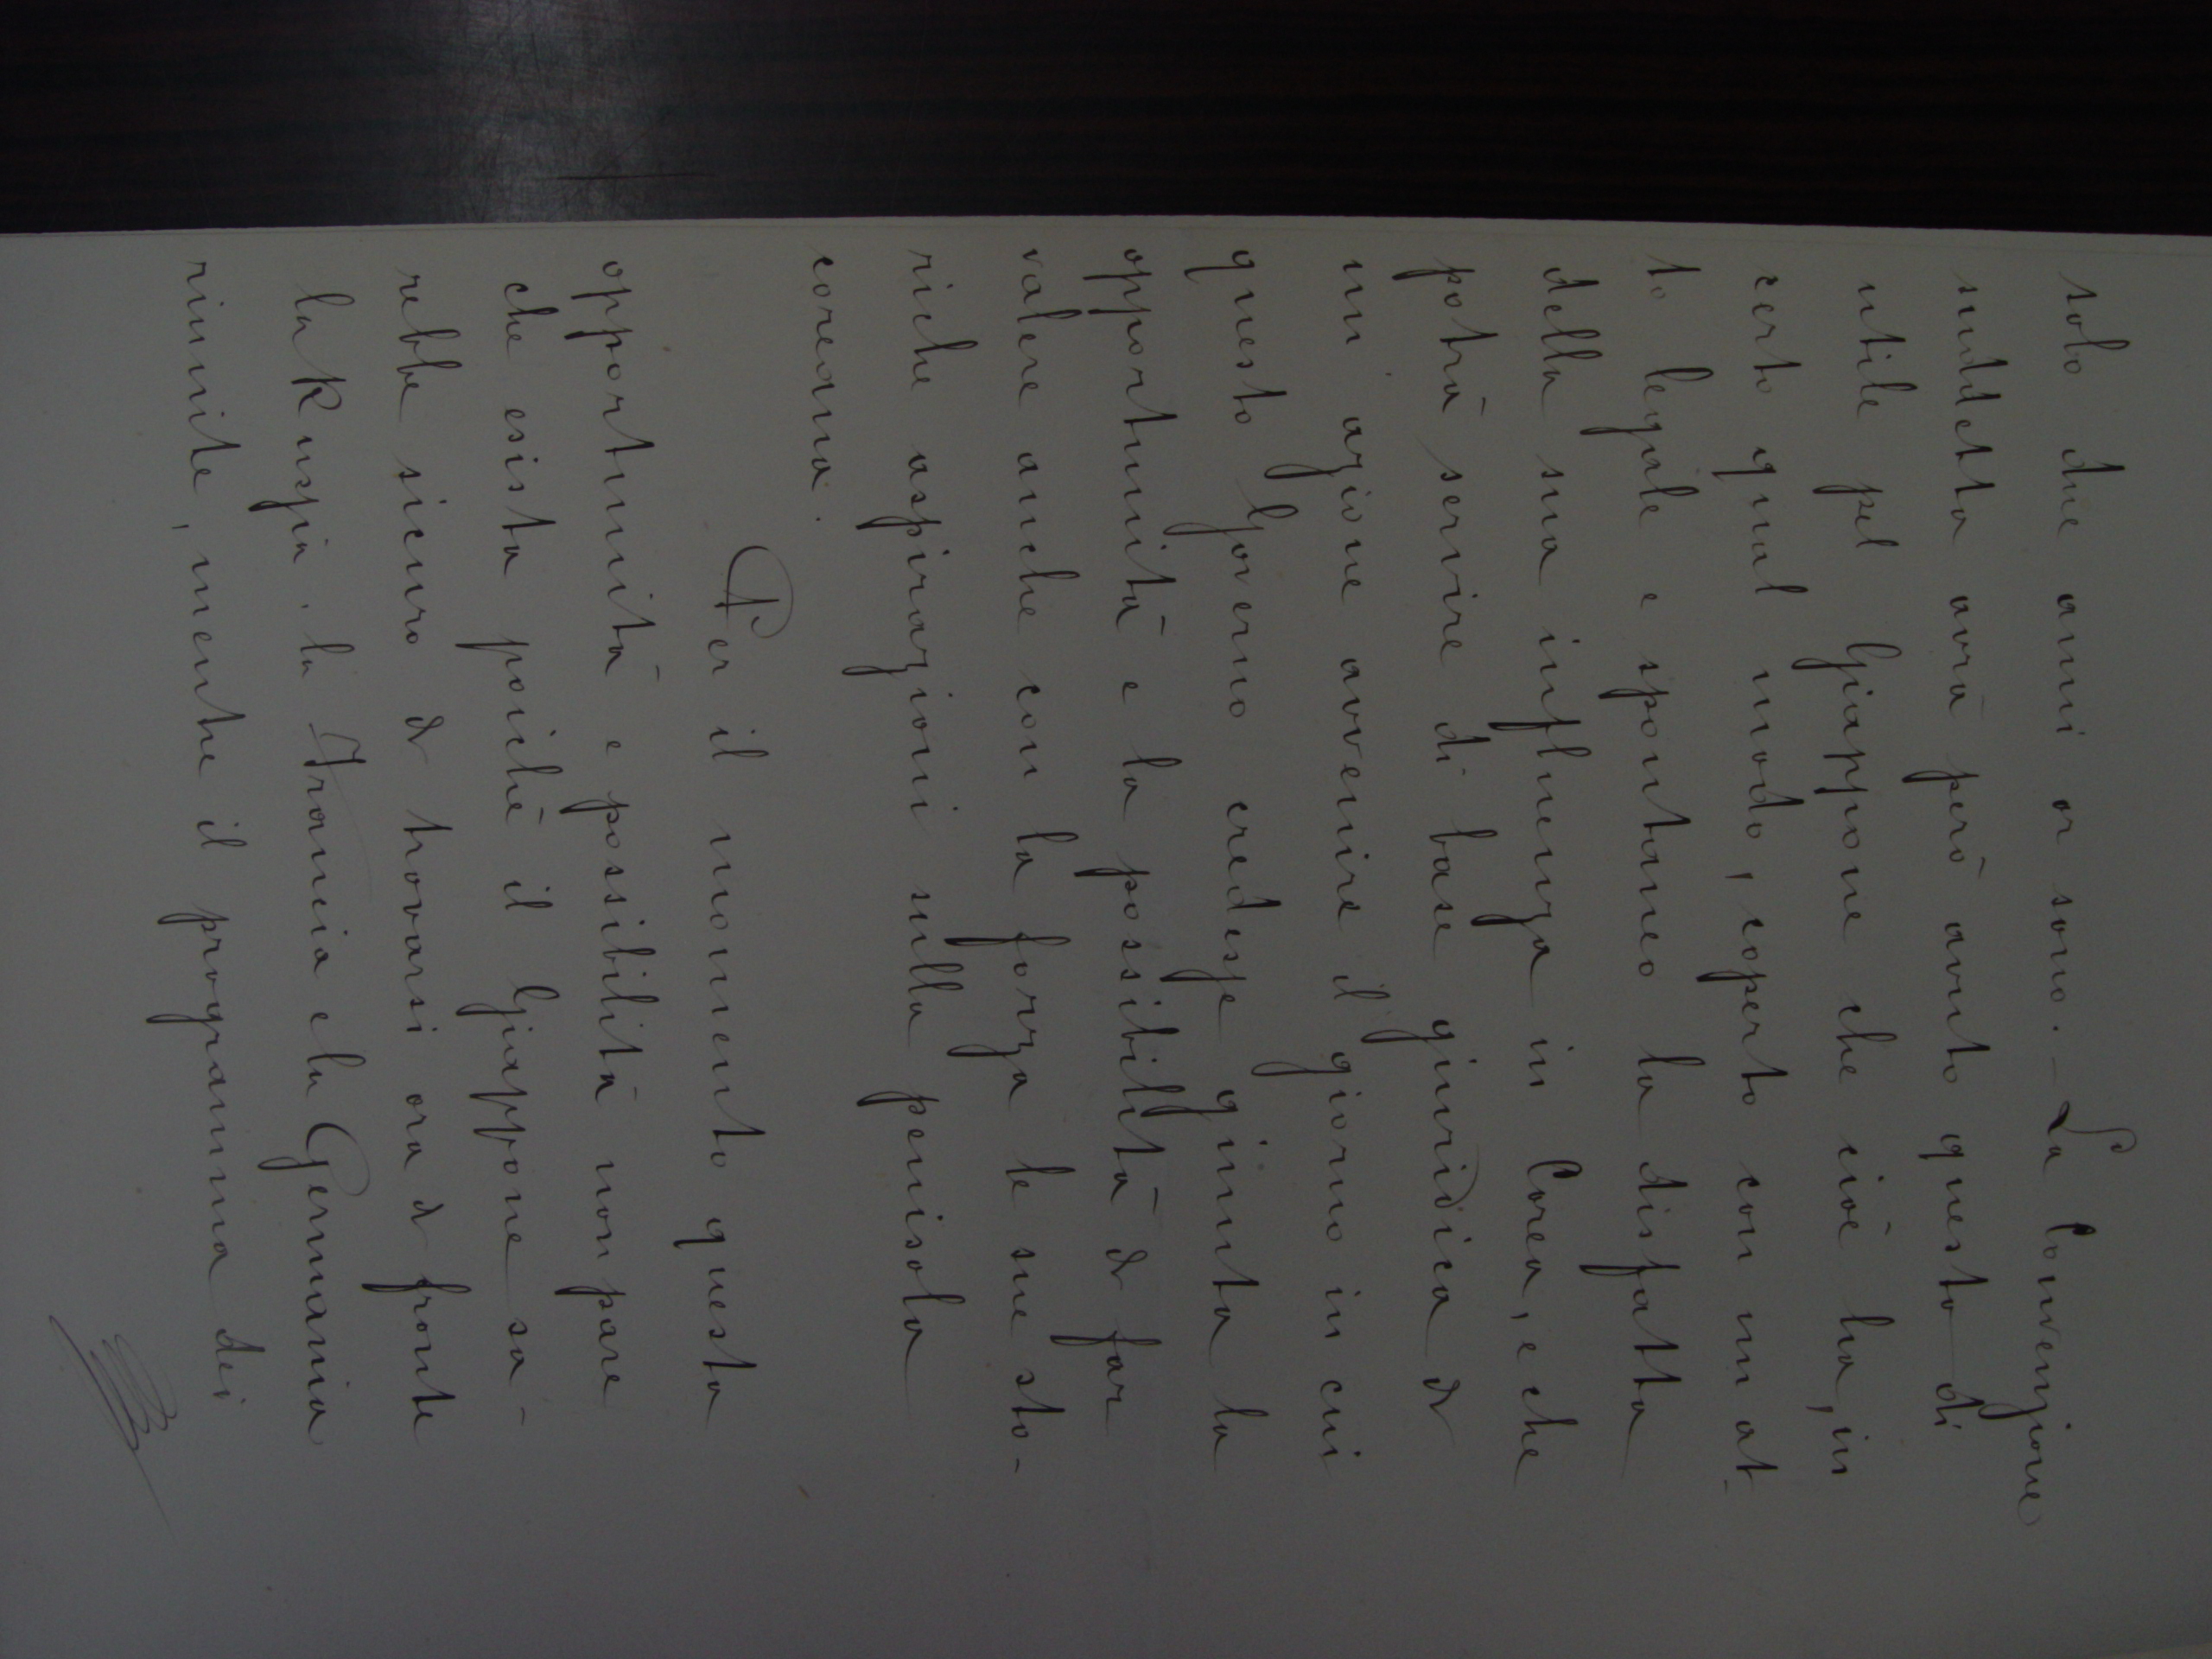 solo due anni or sono. - La Convenzione
suddetta avrà però avuto questo di
utile pel Giappone che cioè ha, in
certo qual modo, coperto con un at-
to legale e spontaneo la disfatta
della sua influenza in Corea, e che
potrà servire di base giuridica di
un' azione avvenire il giorno in cui
questo Governo credesse giunta la
opportunità e la possibilità di far
valere anche con la forza le sue sto-
riche aspirazioni sulla penisola
coreana.
Per il momento questa
opportunità e possibilità non pare
che esista poichè il Giappone sa-
rebbe sicuro di trovarsi ora di fronte
la Russia, la Francia e la Germania
riunite, mentre il programma dei